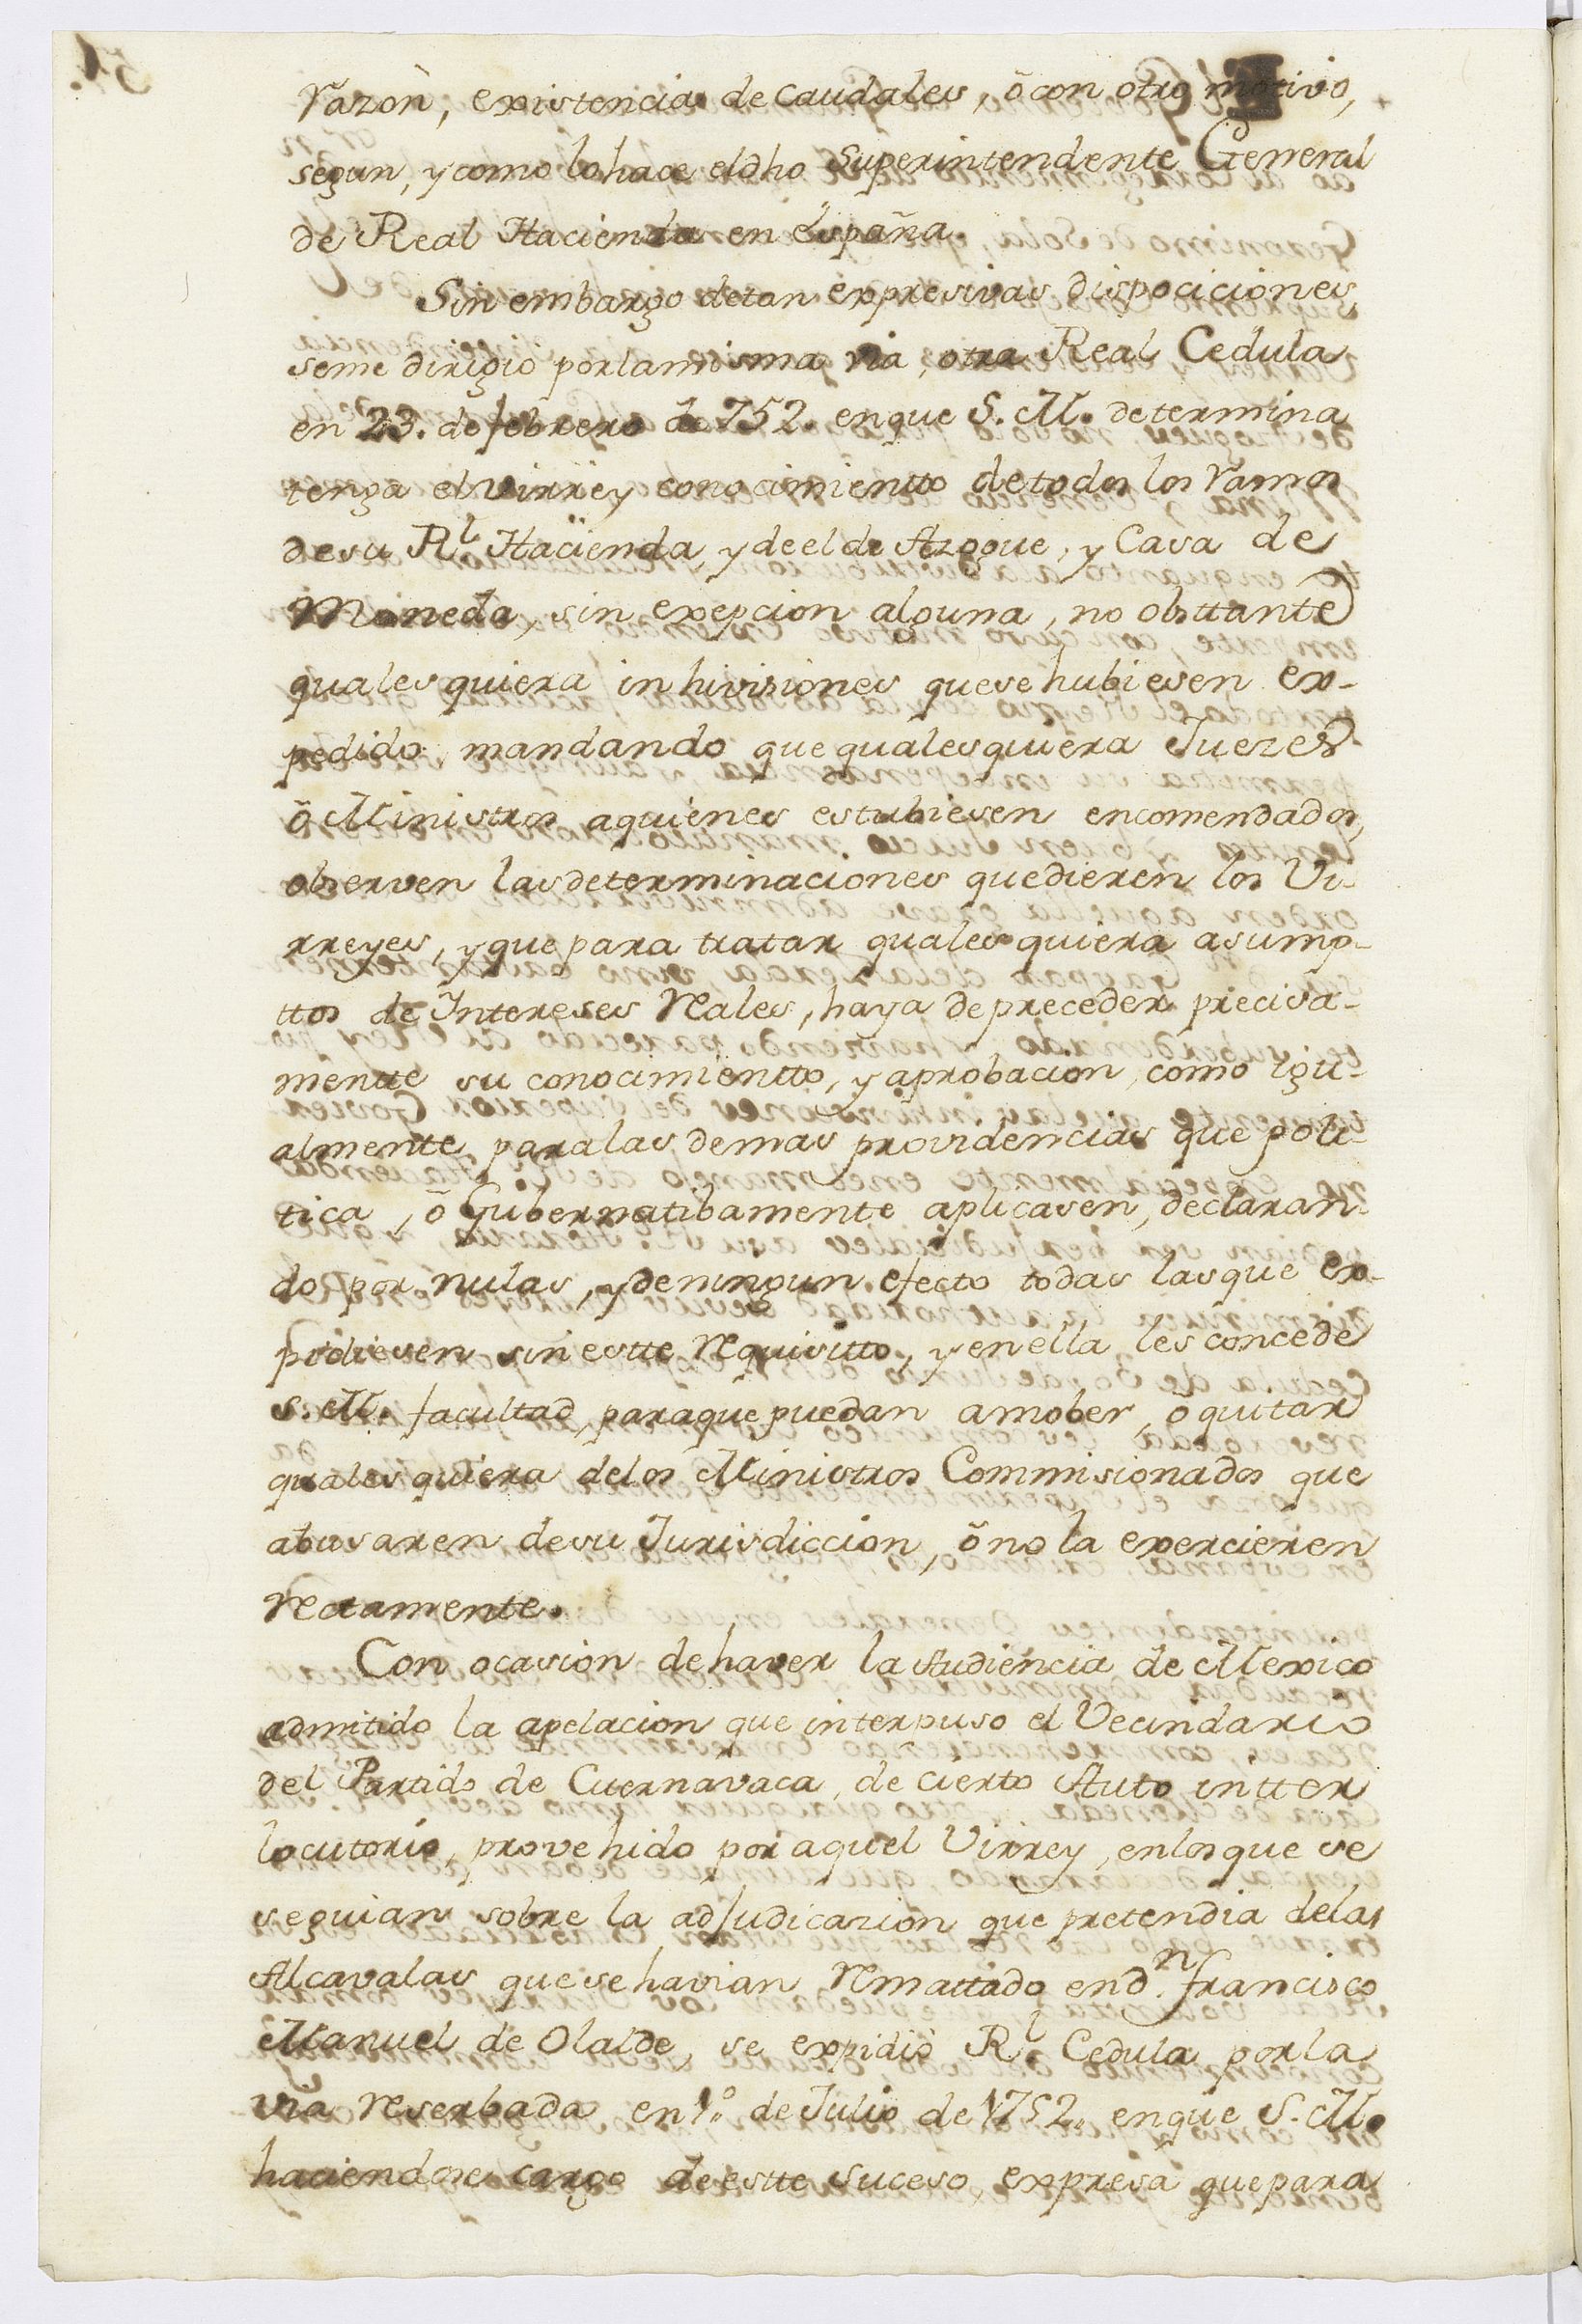 razon, existencia de caudales, õ con otro motivo,
segun, y como lo hace el dho Superintendente General
de Real Hacienda en España.
Sin embargo de tan expresivas dispociciones,
se me dirigio por la misma via, otra Real Cedula
en 23. de febrero de 752. en que S. M. determina
tenga el Virrey conocimientto de todos los ramos
de su Rl. Hacienda, y de el de Azogue, y Casa de
Moneda, sin exepcion alguna, no obsttante
quales quiera inhiviziones que se hubiesen ex-
pedido: mandando que qualesquiera Juezes
õ Ministros a quienes estubiesen encomendados,
observen las determinaciones que dieren los Vi-
rreyes, y que para tratar quales quiera asump-
ttos de Intereses reales, haya de preceder preciva-
mentte su conocimientto, y aprobacion, como igu-
almente para las demas providencias que poli-
tica, õ Gubernatibamente aplicasen, declaran-
do por nulas, y de ningun efecto todas las que ex-
pidiesen sin estte requisitto, y en ella les concede
S. M. facultad para que puedan amober, o quitar
quales quiera de los Ministros Commisionados que
abusaren de su Jurisdiccion, õ no la exercieren
rectamente.
Con ocasion de haver la Audiencia de Mexico
admitido la apelacion que interpuso el Vecindario
del Partido de Cuernavaca, de cierto Auto intter
locutorio, provehido por aquel Virrey, en los que se
seguian sobre la adjudicazion que pretendia de las
Alcavalas que se havian remattado en dn. francisco
Manuel de Olalde, se expidiò Rl. Cedula por la
via reserbada en 1.º de Julio de 1752. en que S. M.
haciendose cargo de estte suceso, expresa que para